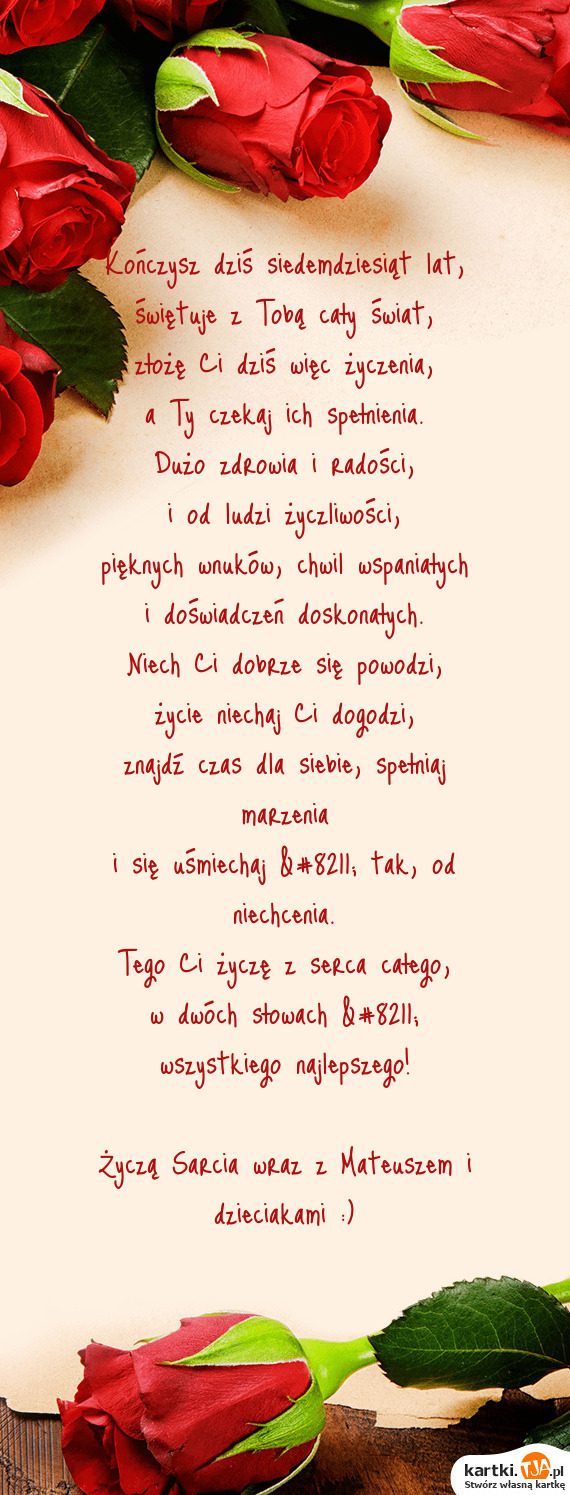 Kończysz dziś siedemdziesiąt lat,
świętuje z Tobą cały świat,
złożę Ci dziś więc życzenia,
a Ty czekaj ich spełnienia.
Dużo zdrowia i radości,
i od ludzi życzliwości,
pięknych wnuków, chwil wspaniałych
i doświadczeń doskonałych.
Niech Ci dobrze się powodzi,
życie niechaj Ci dogodzi,
znajdź czas dla siebie, spełniaj
marzenia
i się uśmiechaj &#8211; tak, od
niechcenia.
Tego Ci życzę z serca całego,
w dwóch słowach &#8211;
wszystkiego najlepszego!
Życzą Sarcia wraz z Mateuszem i
dzieciakami :)
kartki.TJA.pl
Stwórz własną kartkę